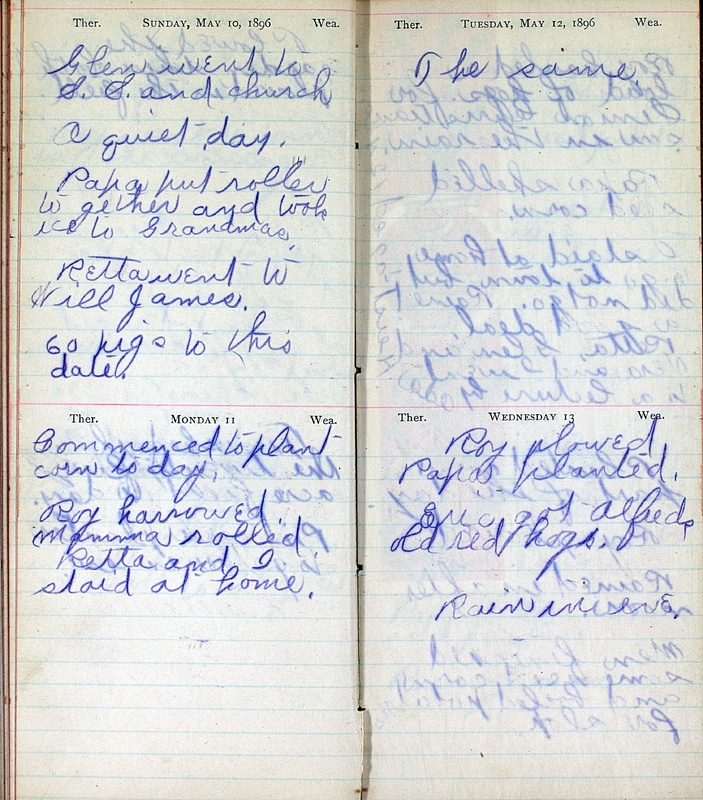 Ther. SUNDAY, MAY 10, 1896 Wea.
Glen went to
S. S. and church
A quiet day.
Papa put roller
to gether and took
ice to Grandmas.
Retta went to
Will James.
60 pigs to this
date.
Ther. MONDAY 11 Wea.
Commenced to plant
corn to day.
Roy harrowed.
Mamma rolled
Retta and I
staid at home.
Ther. TUESDAY, MAY 12, 1896 Wea.
The same.
Ther. WEDNESDAY 13 Wea.
Roy plowed,
Papa planted.
got Alfreds
old red hogs.
Rain in eve.